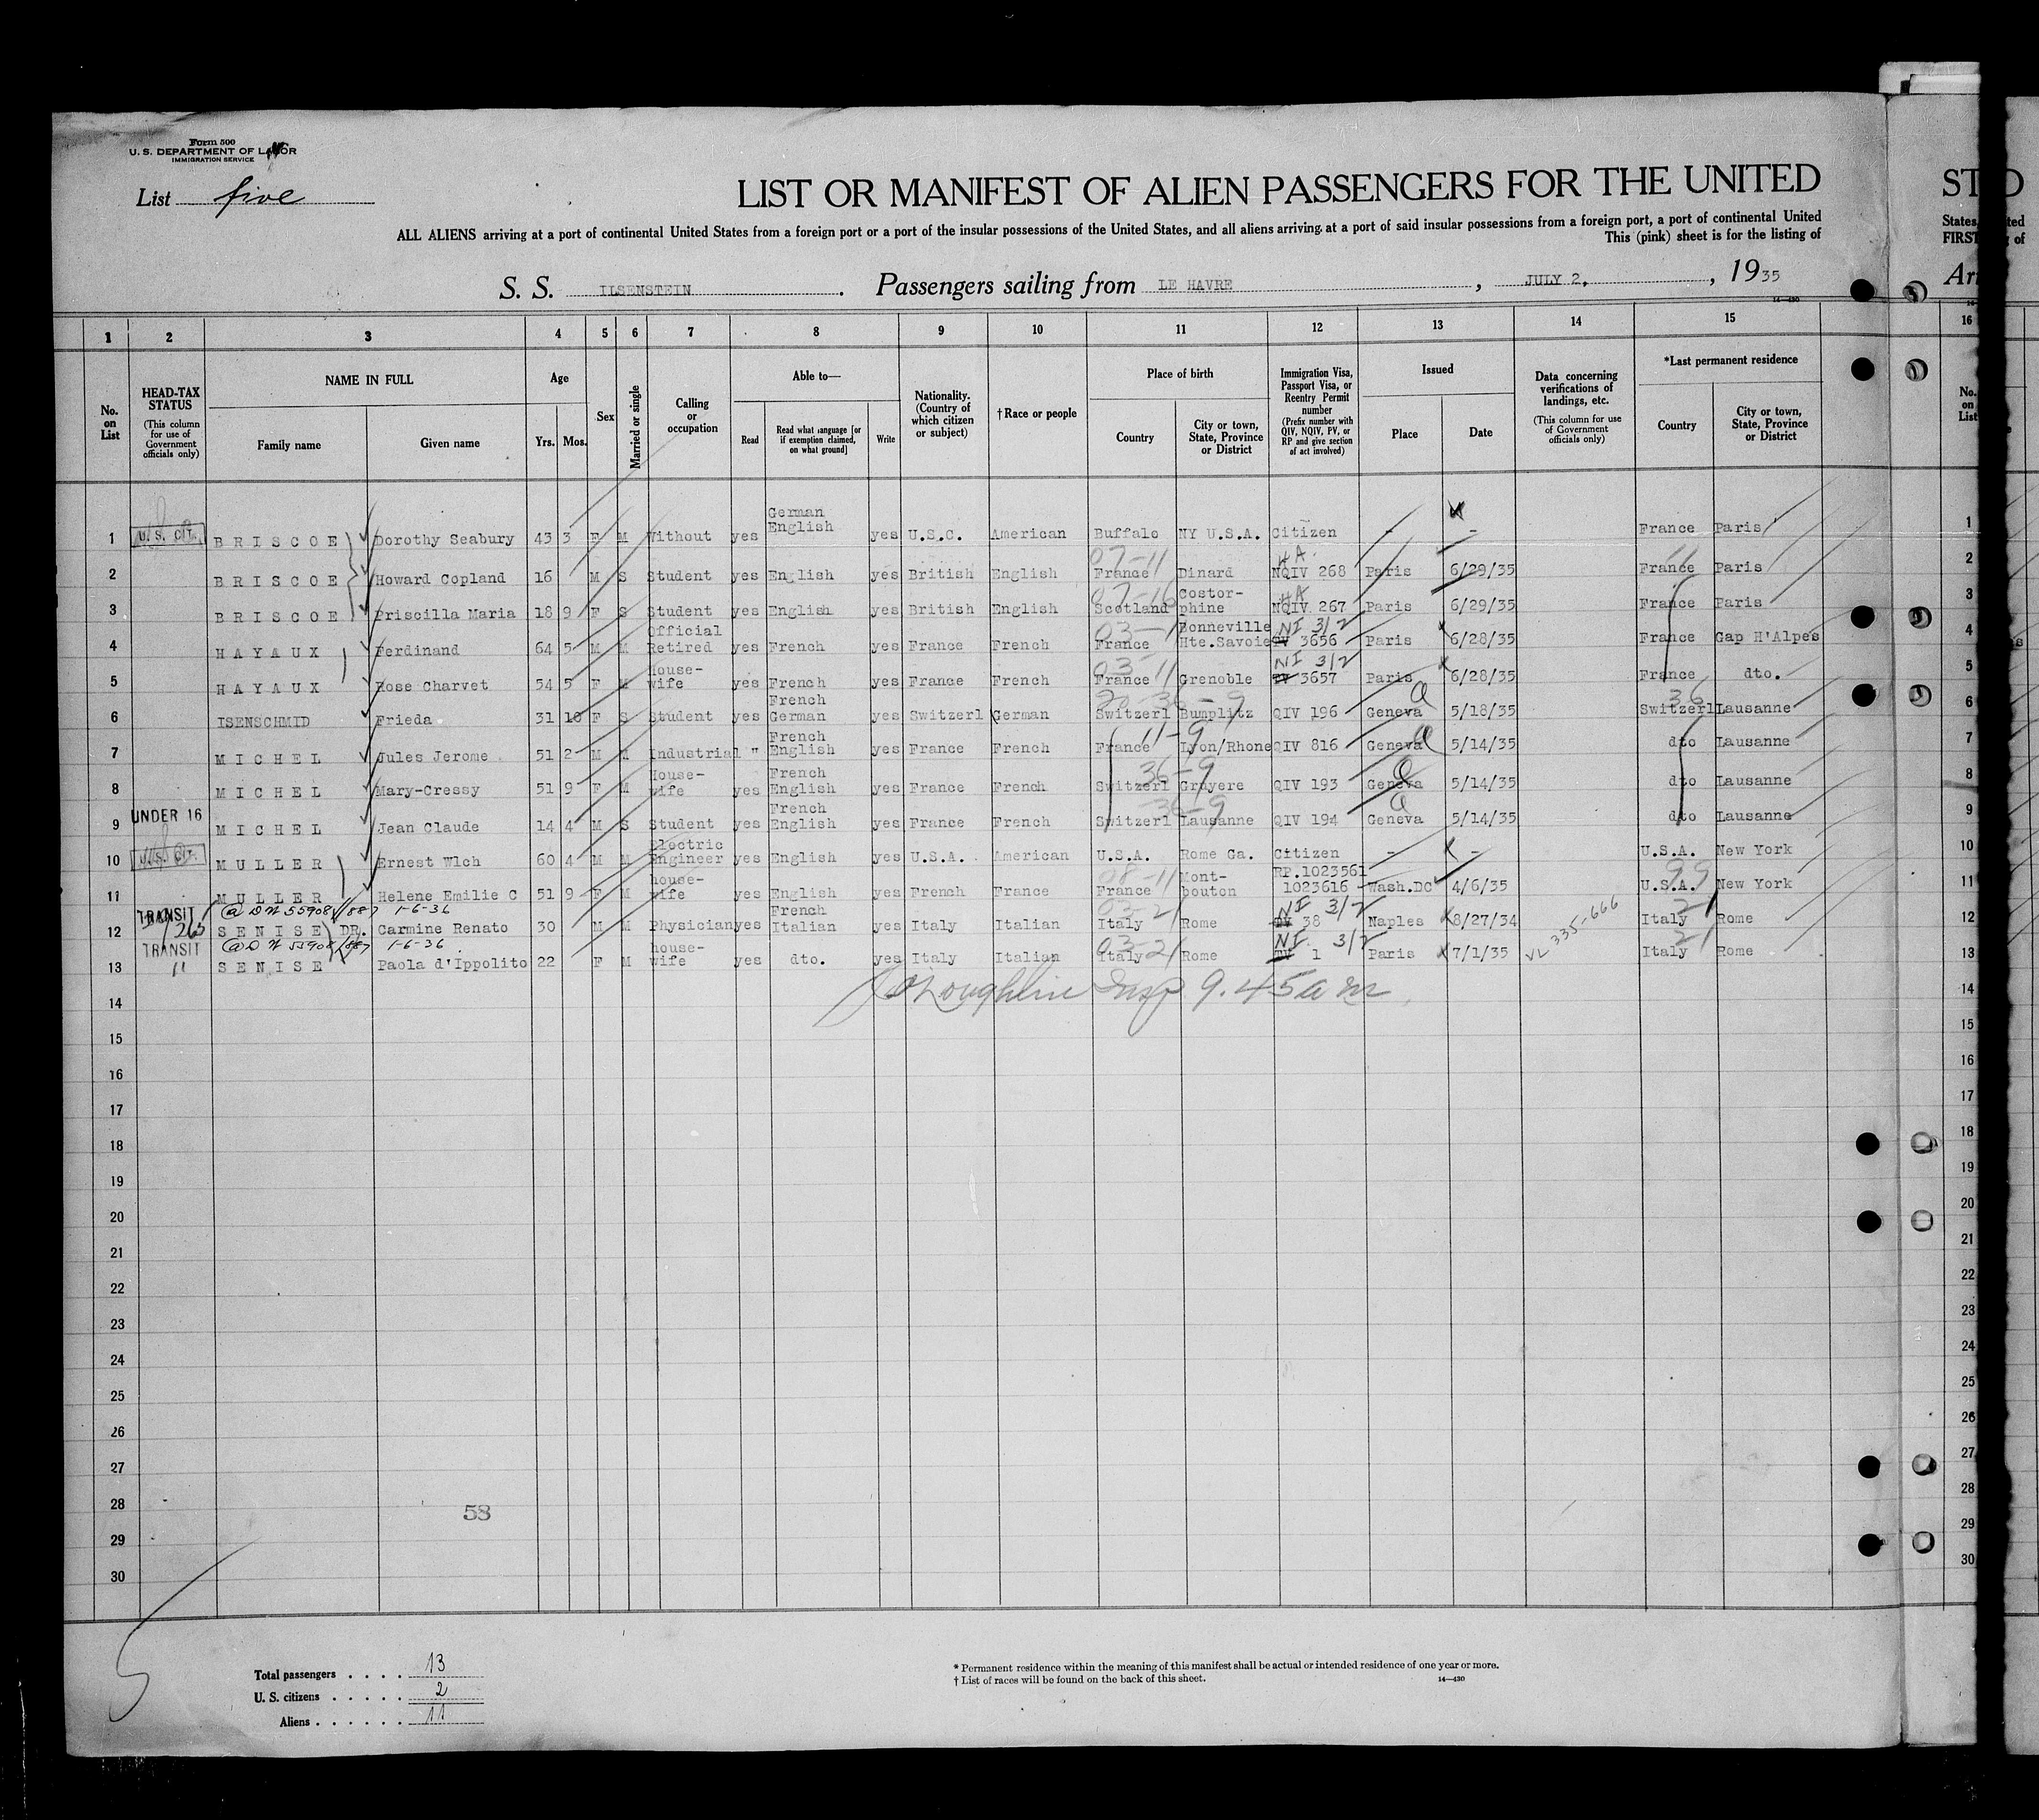 Form 500
U. S. DEPARTMENT OF LABOR
IMMIGRATION SERVICE
List five
LIST OR MANIFEST OF ALIEN PASSENGERS FOR THE UNITED
ALL ALIENS arriving at a port of continental United States from a foreign port or a port of the insular possessions of the United States, and all aliens arriving at a port of said insular possessions from a foreign port, a port of continental United
This (pink) sheet is for the listing of
S. S. ILSENSTEIN. Passengers sailing from LE HAVRE, JULY 2, , 1935
14—430
1 2 3 4 5 6 7 8 9 10 11 12 13 14 15
No. on List
HEAD-TAX STATUS
(This column for use of Government officials only)
NAME IN FULL
Family name
Given name
Age
Yrs. Mos.
Sex
Married or single
Calling or occupation
Able to—
Read
Read what language [or if exemption claimed, on what ground]
Write
Nationality. (Country of which citizen or subject)
†Race or people
Place of birth
Country
City or town, State, Province or District
Immigration Visa, Passport Visa, or Reentry Permit number
(Prefix number with QIV, NQIV, PV, or RP and give section of act involved)
Issued
Place
Date
Data concerning verifications of landings, etc.
(This column for use of Government officials only)
*Last permanent residence
Country
City or town, State, Province or District
1 U.S. CIT. BRISCOE Dorothy Seabury 43 3 F M Without yes German English yes U.S.C. American Buffalo NY U.S.A. Citizen - - France Paris
2 BRISCOE Howard Copland 16 M S Student yes English yes British English France Dinard NQIV 268 Paris 6/29/35 France Paris
3 BRISCOE Priscilla Maria 18 9 F S Student yes English yes British English Scotland Costor-phine NQIV 267 Paris 6/29/35 France Paris
4 HAYAUX Ferdinand 64 5 M M Official Retired yes French yes France French France Bonneville Hte.Savoie NI 3/2 3656 Paris 6/28/35 France Gap H'Alpes
5 HAYAUX Rose Charvet 54 5 F M House-wife yes French yes France French France Grenoble NI 3/2 3657 Paris 6/28/35 France dto.
6 ISENSCHMID Frieda 31 10 F S Student yes French German yes Switzerl German Switzerl Bumplitz QIV 196 Geneva 5/18/35 Switzerl Lausanne
7 MICHEL Jules Jerome 51 2 M M Industrial " French English yes France French France Lyon/Rhone QIV 816 Geneva 5/14/35 dto Lausanne
8 MICHEL Mary-Cressy 51 9 F M House-wife yes French English yes France French Switzerl Gruyere QIV 193 Geneva 5/14/35 dto Lausanne
9 UNDER 16 MICHEL Jean Claude 14 4 M S Student yes French English yes France French Switzerl Lausanne QIV 194 Geneva 5/14/35 dto Lausanne
10 U.S. CIT. MULLER Ernest Wlch 60 4 M M Electric Engineer yes English yes U.S.A. American U.S.A. Rome Ga. Citizen - - U.S.A. New York
11 MULLER Helene Emilie C 51 9 F M house-wife yes English yes French France France Mont-bouton RP.1023561 1023616 Wash.DC 4/6/35 U.S.A. New York
@ D N 55908/887 1-6-36
12 TRANSIT SENISE DR. Carmine Renato 30 M M Physician yes French Italian yes Italy Italian Italy Rome NI 3/2 38 Naples 8/27/34 Italy Rome
@ D N 55908/887 1-6-36
13 TRANSIT " SENISE Paola d'Ippolito 22 F M house-wife yes dto. yes Italy Italian Italy Rome NI 3/2 1 Paris 7/1/35 VL 335-666 Italy Rome
14 Insp 9.45 am
15
16
17
18
19
20
21
22
23
24
25
26
27
28
53
29
30
Total passengers . . . . 13
U. S. citizens . . . . . 2
Aliens . . . . . . 11
* Permanent residence within the meaning of this manifest shall be actual or intended residence of one year or more.
† List of races will be found on the back of this sheet.
14—430